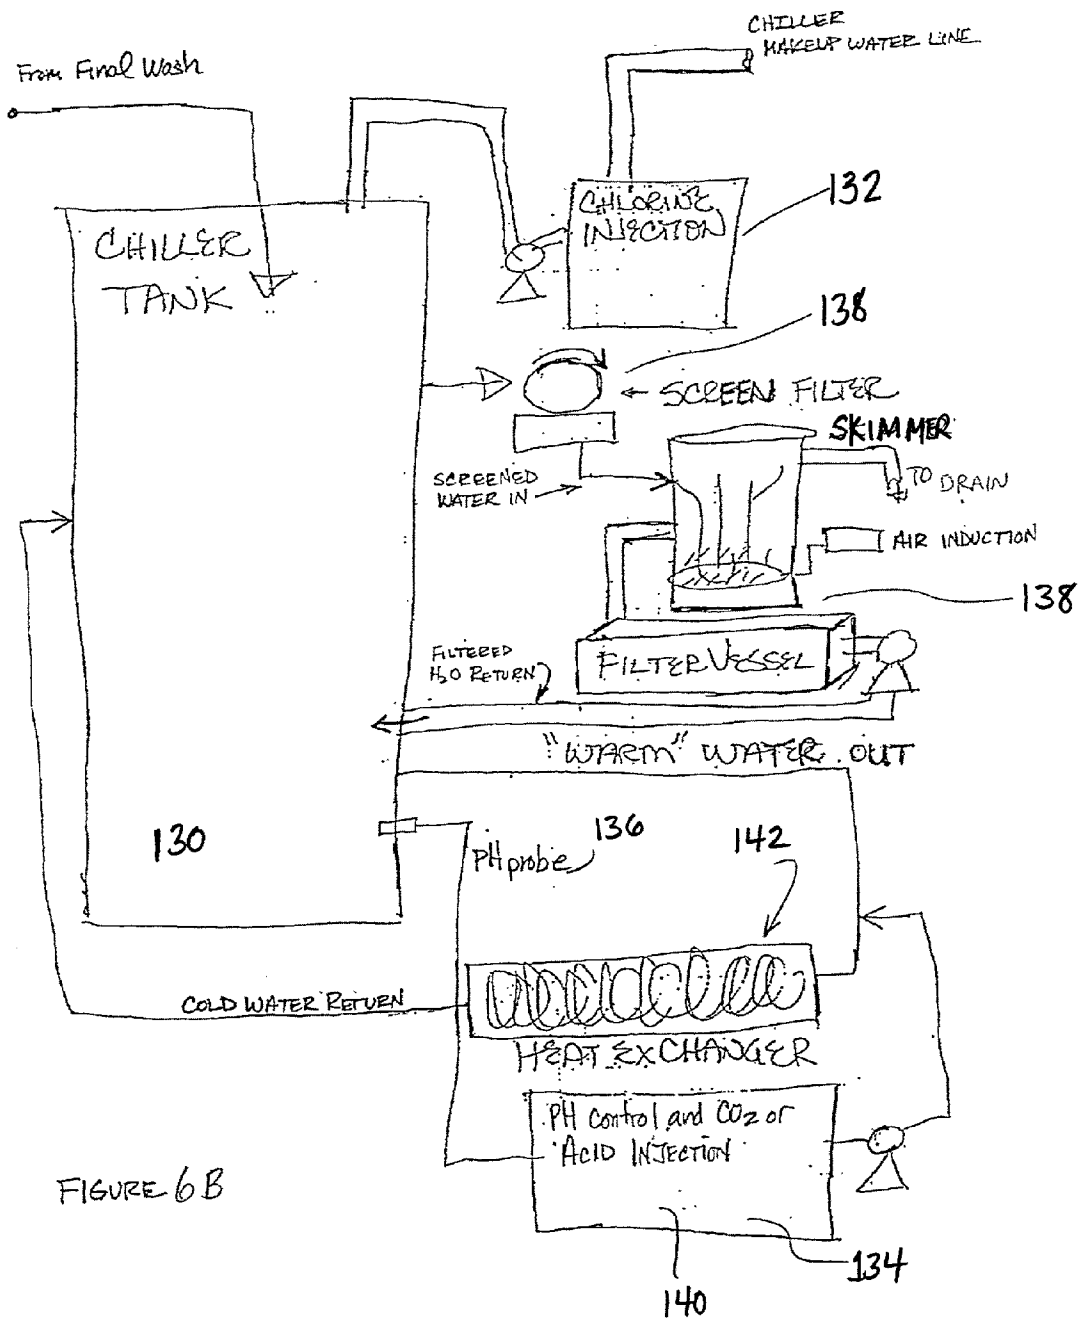 CHILLER
MAKEUP WATER LINE
From Final Wash
CHLORINE
INJECTION
132
CHILLER
TANK
138
SCREEN FILTER
SKIMMER
SCREENED
WATER IN
TO DRAIN
AIR INDUCTION
138
FILTERED
H2O RETURN
FILTER VESSEL
"WARM" WATER OUT
130
PH probe
136
142
COLD WATER RETURN
HEAT EXCHANGER
PH control and CO2 or
ACID INJECTION
FIGURE 6B
134
140